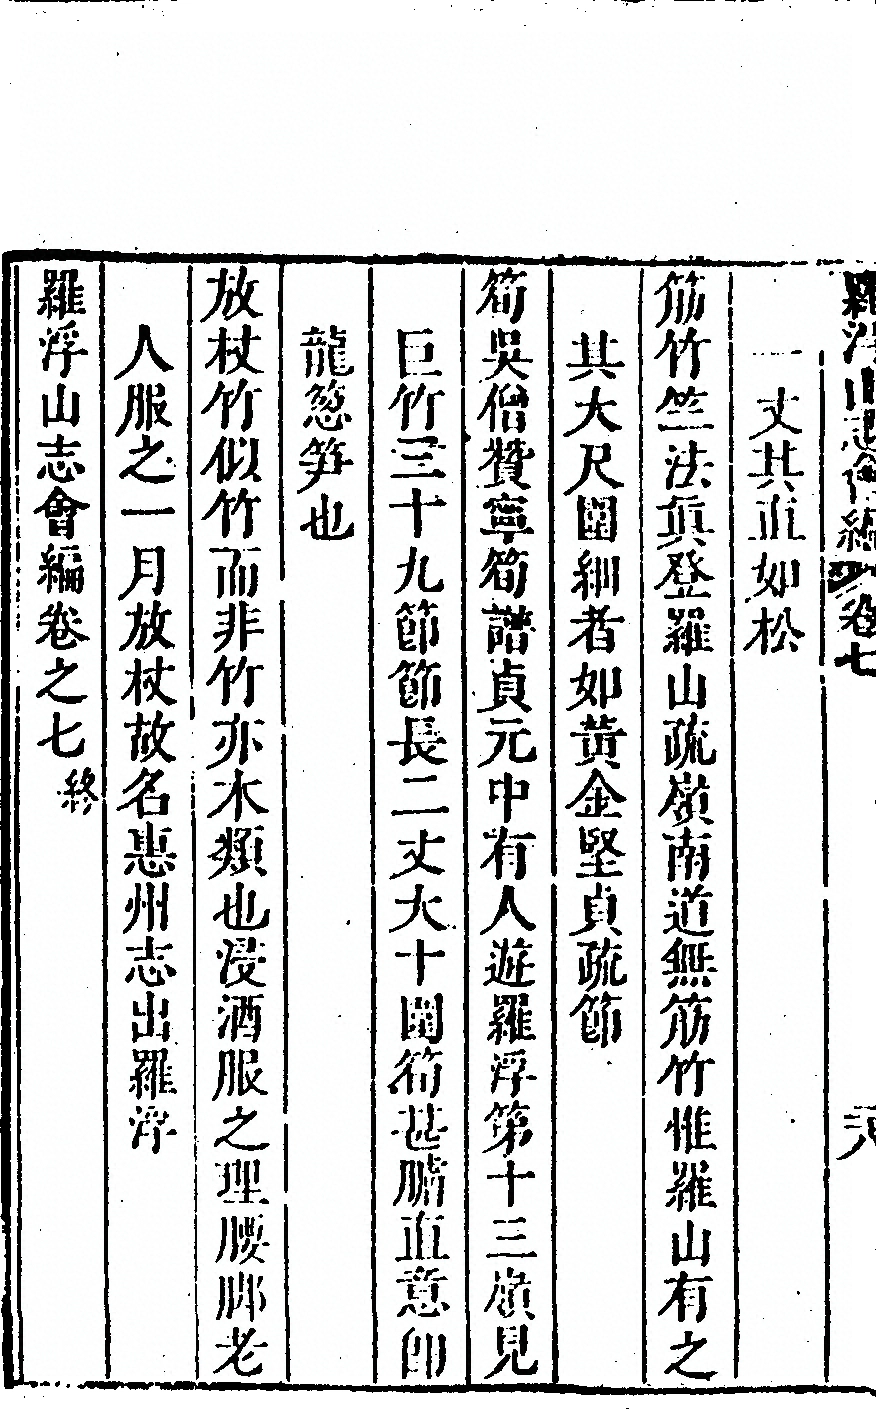 羅浮山志會編 卷七 二十八
一丈其直如松
筋竹竺法真登羅山疏嶺南道無筋竹惟羅山有之
其大尺圍細者如黃金堅貞疏節
筍吳僧贊寧筍譜貞元中有人遊羅浮第十三嶺見
巨竹三十九節節長二丈大十圍筍甚腯直意卽
龍葱笋也
放杖竹似竹而非竹亦木類也浸酒服之理腰脚老
人服之一月放杖故名惠州志出羅浮
羅浮山志會編卷之七終